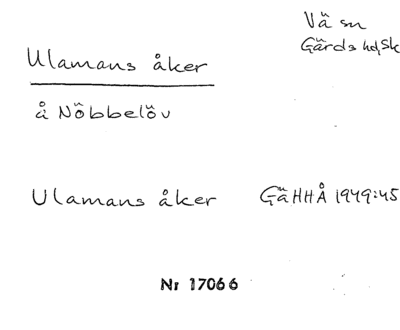 Vä sn
Gärds hd, Sk
Ulamans åker
å Nöbbelöv
Ulamans åker GäHHÅ 1949:45
Nr 17066